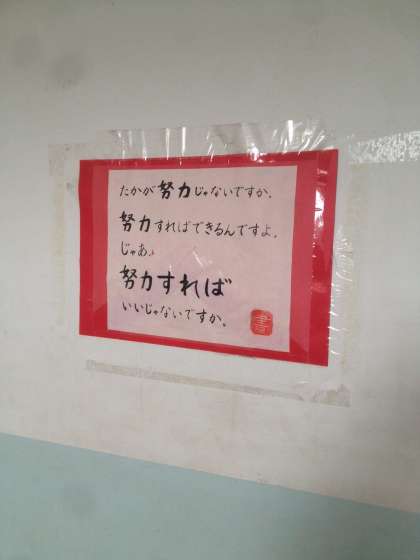 たかが努力じゃないですか。
努力すればできるんですよ。
じゃあ、
努力すれば
いいじゃないですか。